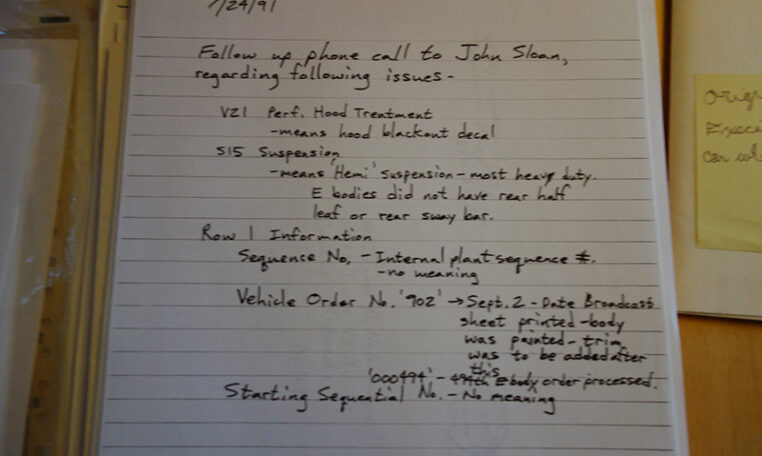 7/24/91
Follow up phone call to John Sloan,
regarding following issues -
V21 Perf. Hood Treatment
-means hood blackout decal
S15 Suspension
-means 'Hemi' suspension - most heavy duty.
E bodies did not have rear half
leaf or rear sway bar.
Row 1 Information
Sequence No. - Internal plant sequence #.
-no meaning
Vehicle Order No. '902' → Sept. 2 - Date Broadcast
sheet printed -body
was painted - trim
was to be added after
this
'000494' - 494th E body order processed.
Starting Sequential No. - No meaning